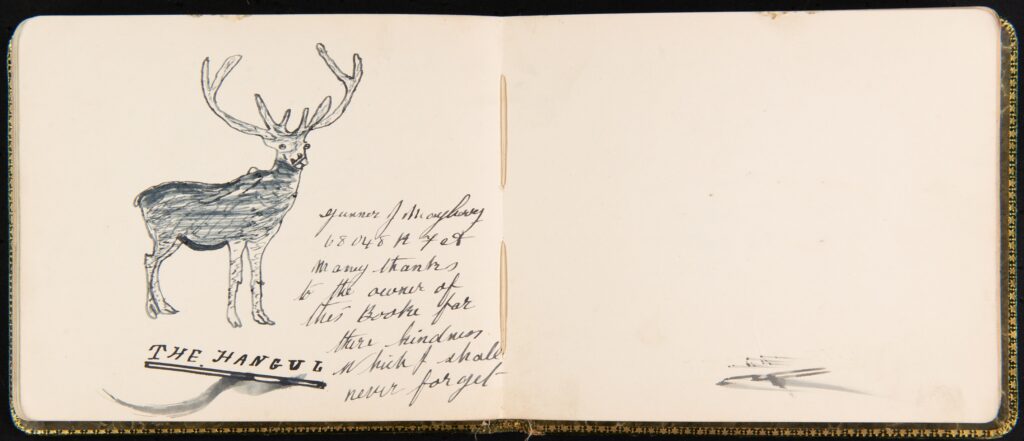 THE HANGUL
Gunner J
68048
Many thanks
to the owner of
this Booke for
there kindness
which I shall
never forget